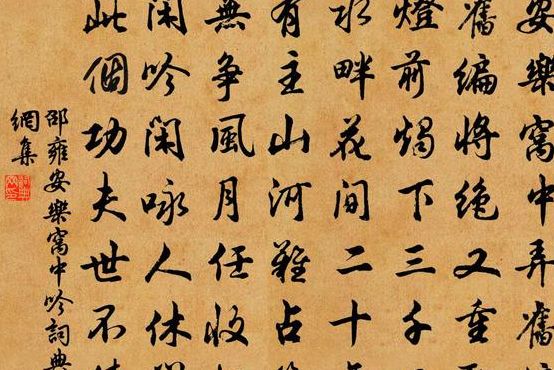 安樂窩中弄舊
舊編將絕又重
燈前燭下三千
水畔花間二十
有主山河難占
無爭風月任收
閑吟閑詠人休
此個功夫世不
邵雍安樂窩中吟詞典
網集